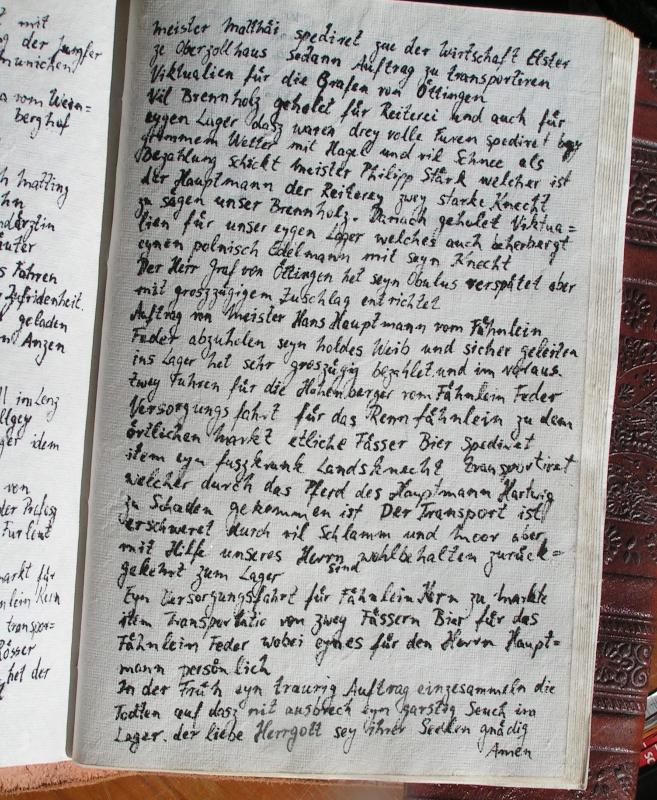 t mit
ng der Jungfer
a vom Wein=
berghof
h Matting
ndärztin
äuter
s Fahren
Zufridenheit.
y geladen
Anzen
ll im Lenz
ger idem
von
der Profosz
Furleut
markt für
nlein Kern
transpor=
Rösser
het der
meister Matthäi spediret zue der Wirtschaft Elster
ze Oberzollhaus sodann Auftrag zu transportiren
Viktualien für die Grafen von Öttingen
Vil Brennholz geholet für Reiterei und auch für
eygen Lager dasz waren drey volle Furen spediret bey
Wetter mit Hagel und vil Schnee als
Bezahlung schickt meister Philipp Stark welcher ist
der Hauptmann der Reiterey zwey starke Knecht
zu sägen unser Brennholz. Darnach geholet Viktua=
lien für unser eygen Lager welches auch beherbergt
eynen polnisch Edelmann mit seyn Knecht
Der Herr Graf von Öttingen het seyn Obulus verspätet aber
mit groszzügigem Zuschlag entrichtet
Auftrag von Meister Hans Hauptmann vom Fåhnlein
Feder abzuholen seyn holdes Weib und sicher geleiten
ins Lager het sehr groszügig bezahlet und im voraus
zwey Fuhren für die Hohenberger vom Fåhnlein Feder
Versorgungsfahrt für das Rennfåhnlein zu dem
örtlichen Markt etliche Fåsser Bier spediret
item eyn fuszkrank Landsknecht transportiret
welcher durch das Pferd des Hauptmann Hartwig
zu Schaden gekommen ist Der Transport ist
erschweret durch vil Schlamm und Moor aber
mit Hilfe unseres Herrn wohlbehalten zurück=
gekehrt zum Lager sind
Eyn Versorgungsfahrt für Fåhnlein Kern zu Markte
item Transportatio von zwey Fåssern Bier für das
Fåhnlein Feder wobei eynes für den Herrn Haupt=
mann persönlich
In der Früh eyn traurig Auftrag einzesammeln die
Todten auf dasz nit ausbrech eyn garstig Seuch im
Lager. der liebe Herrgott sey ihrer Seelen gnädig
Amen